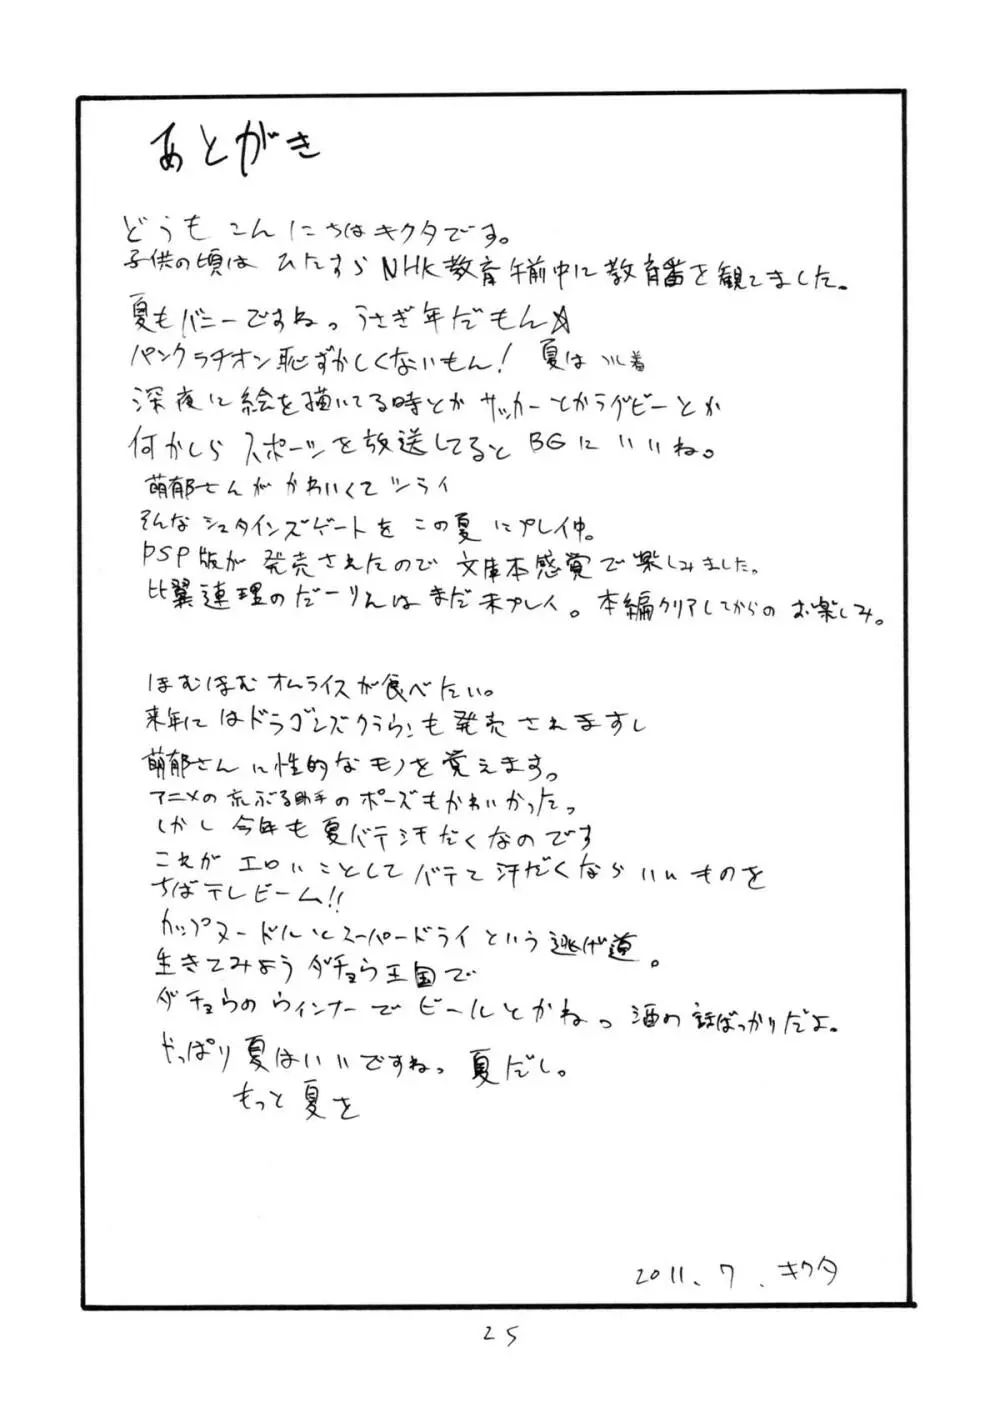 あとがき
どうもこんにちはキクタです。
子供の頃はひたすらNHK教育午前中に教育番を観てました。
夏もバニーですねっうさぎ年だもん☆
パンクラチオン恥ずかしくないもん! 夏は 着
深夜に絵を描いてる時とかサッカーとかラグビーとか
何かしらスポーツを放送してるとBGにいいね。
萌郁さんがかわいくてツライ
そんなシュタインズゲートをこの夏にプレイ中。
PSP版が発売されたので文庫本感覚で楽しみました。
比翼連理のだーりんはまだ未プレイ。本編クリアしてからのお楽しみ。
ほむほむオムライスが食べたい。
来年にはドラゴンズクラウンも発売されますし
萌郁さんに性的なモノを覚えます。
アニメの荒ぶる助手のポーズもかわいかったっ
しかし今年も夏バテ汗だくなのです
これがエロいことしてバテて汗だくならいいものを
ちばテレビーム!!
カップヌードルとスーパードライという逃げ道。
生きてみようダチョウ王国で
ダチョウのウィンナーでビールとかねっ酒の話ばっかりだよ。
やっぱり夏はいいですねっ夏だし。
もっと夏を
2011.7.キクタ
25